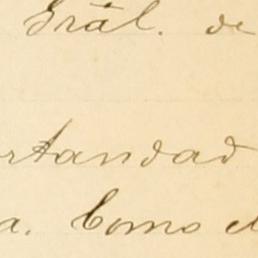 Grãl. de
rtandad
a. Como el